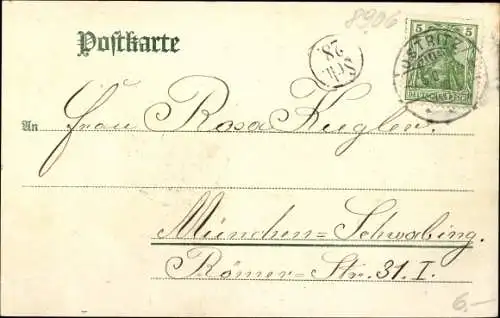 8906
Postkarte
28.
Sch.
5 5
OSTRITZ
DEUTSCHES REICH
An Frau Rosa Kugler.
München=Schwabing.
Römer=Str. 31. I.
6.-